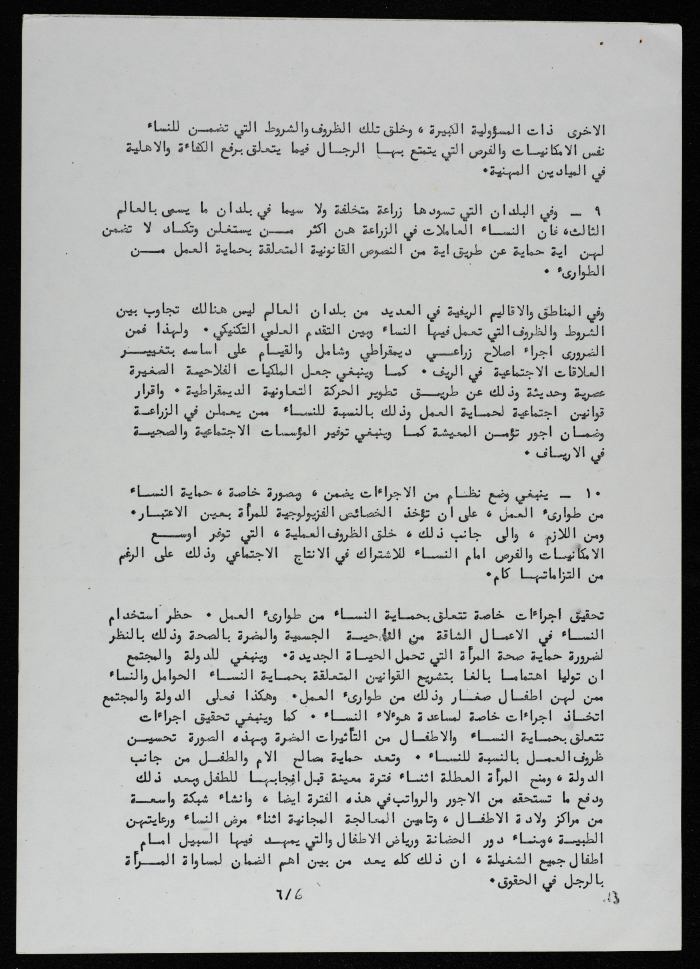 الاخرى ذات المسؤولية الكبيرة ، وخلق تلك الظروف والشروط التي تضمن للنساء
نفس الامكانيات والفرص التي يتمتع بها الرجال فيما يتعلق برفع الكفاءة والاهلية
في الميادين المهنية.
٩ ـ وفي البلدان التي تسودها زراعة متخلفة ولا سيما في بلدان ما يسمى بالعالم
الثالث، فان النساء العاملات في الزراعة هن اكثر من يستغلن وتكاد لا تضمن
لهن اية حماية عن طريق اية من النصوص القانونية المتعلقة بحماية العمل من
الطوارىء .
وفي المناطق والاقاليم الريفية في العديد من بلدان العالم ليس هنالك تجاوب بين
الشروط والظروف التي تعمل فيها النساء وبين التقدم العلمي التكنيكي . ولهذا فمن
الضرورى اجراء اصلاح زراعي ديمقراطي وشامل والقيام على اساسه بتغيير
العلاقات الاجتماعية في الريف . كما وينبغي جعل الملكيات الفلاحية الصغيرة
عصرية وحديثة وذلك عن طريق تطوير الحركة التعاونية الديمقراطية . واقرار
قوانين اجتماعية لحماية العمل وذلك بالنسبة للنساء ممن يعملن في الزراعة
وضمان اجور تؤمن المعيشة كما وينبغي توفير المؤسسات الاجتماعية والصحية
في الارياف .
١٠ ـ ينبغي وضع نظام من الاجراءات يضمن ، وبصورة خاصة ، حماية النساء
من طوارىء العمل ، على ان تؤخذ الخصائص الفزيولوجية للمرأة بعين الاعتبار.
ومن اللازم ، والى جانب ذلك ، خلق الظروف العملية ، التي توفر اوسع
الامكانيات والفرص امام النساء للاشتراك في الانتاج الاجتماعي وذلك على الرغم
من التزاماتها كام.
تحقيق اجراءات خاصة تتعلق بحماية النساء من طوارىء العمل . حظر استخدام
النساء في الاعمال الشاقة من الناحية الجسمية والمضرة بالصحة وذلك بالنظر
لضرورة حماية صحة المرأة التي تحمل الحياة الجديدة. وينبغي للدولة والمجتمع
ان توليا اهتماما بالغا بتشريع القوانين المتعلقة بحماية النساء الحوامل والنساء
ممن لهن اطفال صغار وذلك من طوارىء العمل. وهكذا فعلى الدولة والمجتمع
اتخاذ اجراءات خاصة لمساعدة هوءلاء النساء . كما وينبغي تحقيق اجراءات
تتعلق بحماية النساء والاطفال من التأثيرات المضرة وبهذه الصورة تحسين
ظروف العمل بالنسبة للنساء . وتعد حماية مصالح الام والطفل من جانب
الدولة ، ومنح المرأة العطلة اثناء فترة معينة قبل انجابها للطفل وبعد ذلك
ودفع ما تستحقه من الاجور والرواتب في هذه الفترة ايضا ، وانشاء شبكة واسعة
من مراكز ولادة الاطفال ، وتامين المعالجة المجانية اثناء مرض النساء ورعايتهن
الطبية ، وبناء دور الحضانة ورياض الاطفال والتي يمهد فيها السبيل امام
اطفال جميع الشغيلة ، ان ذلك كله يعد من بين اهم الضمان لمساواة المرأة
بالرجل في الحقوق.
٦/6